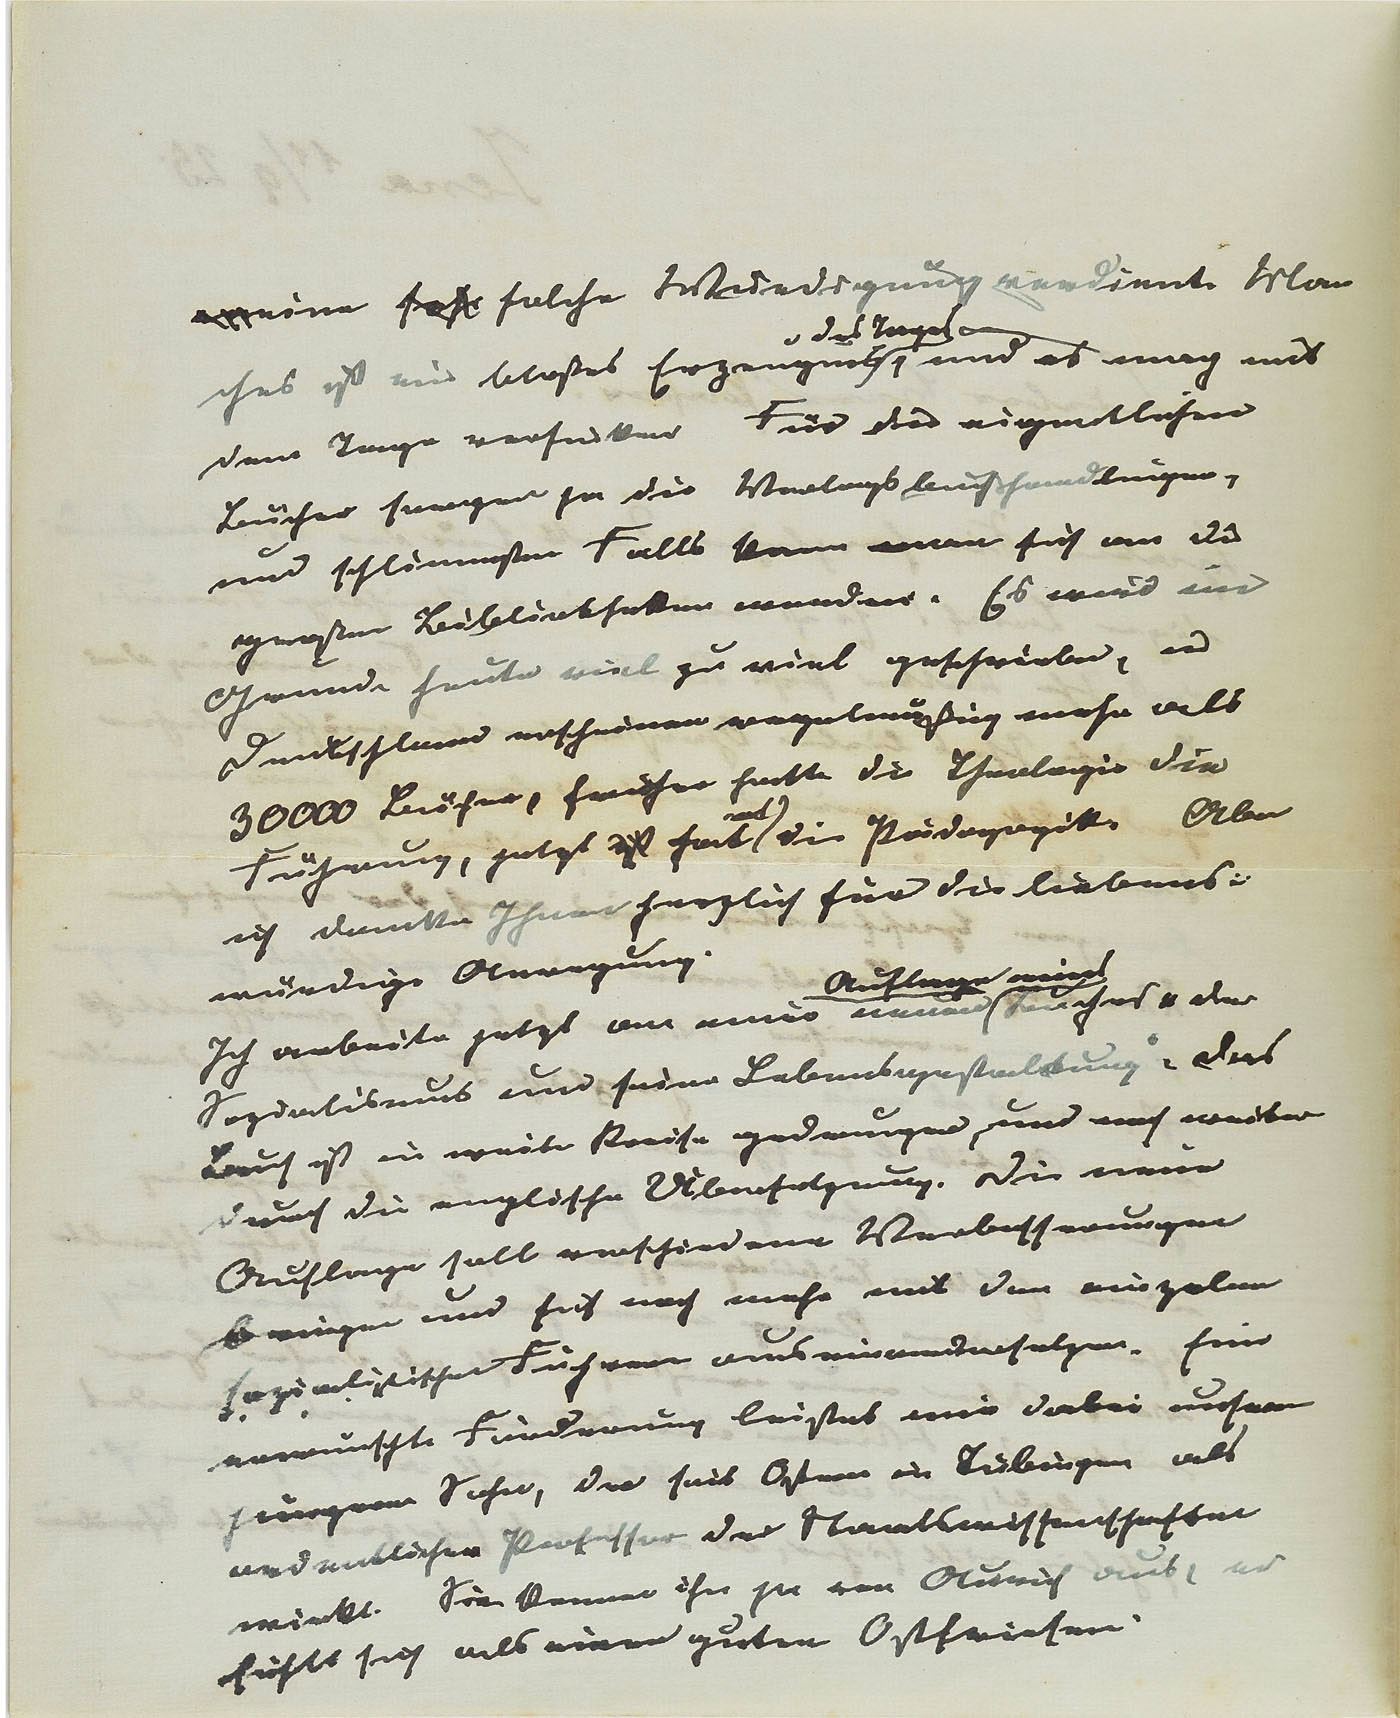 eine solche Würdigung verdient. Man
ches ist ein bloßes Erzeugnis des Tages, und es mag mit
dem Tage versinken. Für die eigentlichen
Bücher sorgen ja die Verlagsbuchhandlungen,
und schlimmsten Falls kann man sich an die
großen Bibliotheken wenden. Es wird im
Grunde heute viel zu viel geschrieben, in
Deutschland erscheinen regelmäßig mehr als
30000 Bücher, früher hatte die Theologie die
Führung, jetzt hat die Pädagogik. Aber
ich danke Ihnen herzlich für die liebens-
würdige Anregung.
Ich arbeite jetzt an einer neuen Auflage eines Buches "der
Sozialismus und seine Lebensgestaltung". Das
Buch ist in weite Kreise gedrungen, und noch weiter
durch die englische Übersetzung. Die neue
Auflage soll verschiedene Verbesserungen
bringen und sich noch mehr mit den einzelnen
sozialistischen Führern auseinandersetzen. Eine
erwünschte Förderung leistet mir dabei unser
jüngerer Sohn, der seit Ostern in Tübingen als
ordentlicher Professor der Staatswissenschaften
wirkt. Sie kennen ihn ja von Aurich aus, er
fühlt sich als einen guten Ostfriesen.